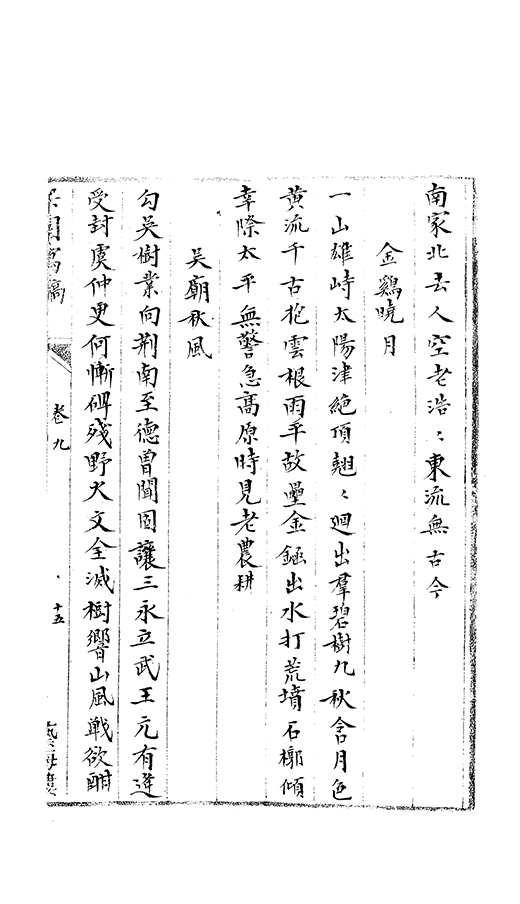 南家北去人空老浩〻東流無古今
金鷄曉月
一山雄峙太陽津絶頂翹〻迥出羣碧樹九秋含月色
黄流千古抱雲根雨平故壘金鏂出水打荒墳石槨傾
幸際太平無警急高原時見老農耕
吴廟秋風
勾吴樹業向荆南至德曽聞固讓三永立武王元有逹
受封虞仲更何慚碑殘野火文全滅樹響山風戰欲酣
卷九
十五